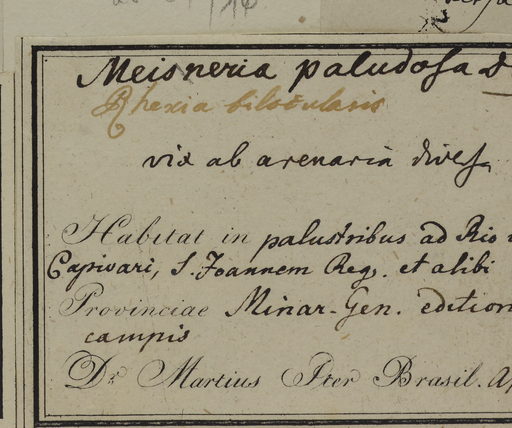 Meisneria paludosa D
Rhexia bilocularis
vix ab arenaria divers
Habitat in palustribus ad Rio
Capivari, S. Joannem Reg. et alibi
Provinciae Minar. Gen. edition
campis
Dr. Martius Iter Brasil. Ap